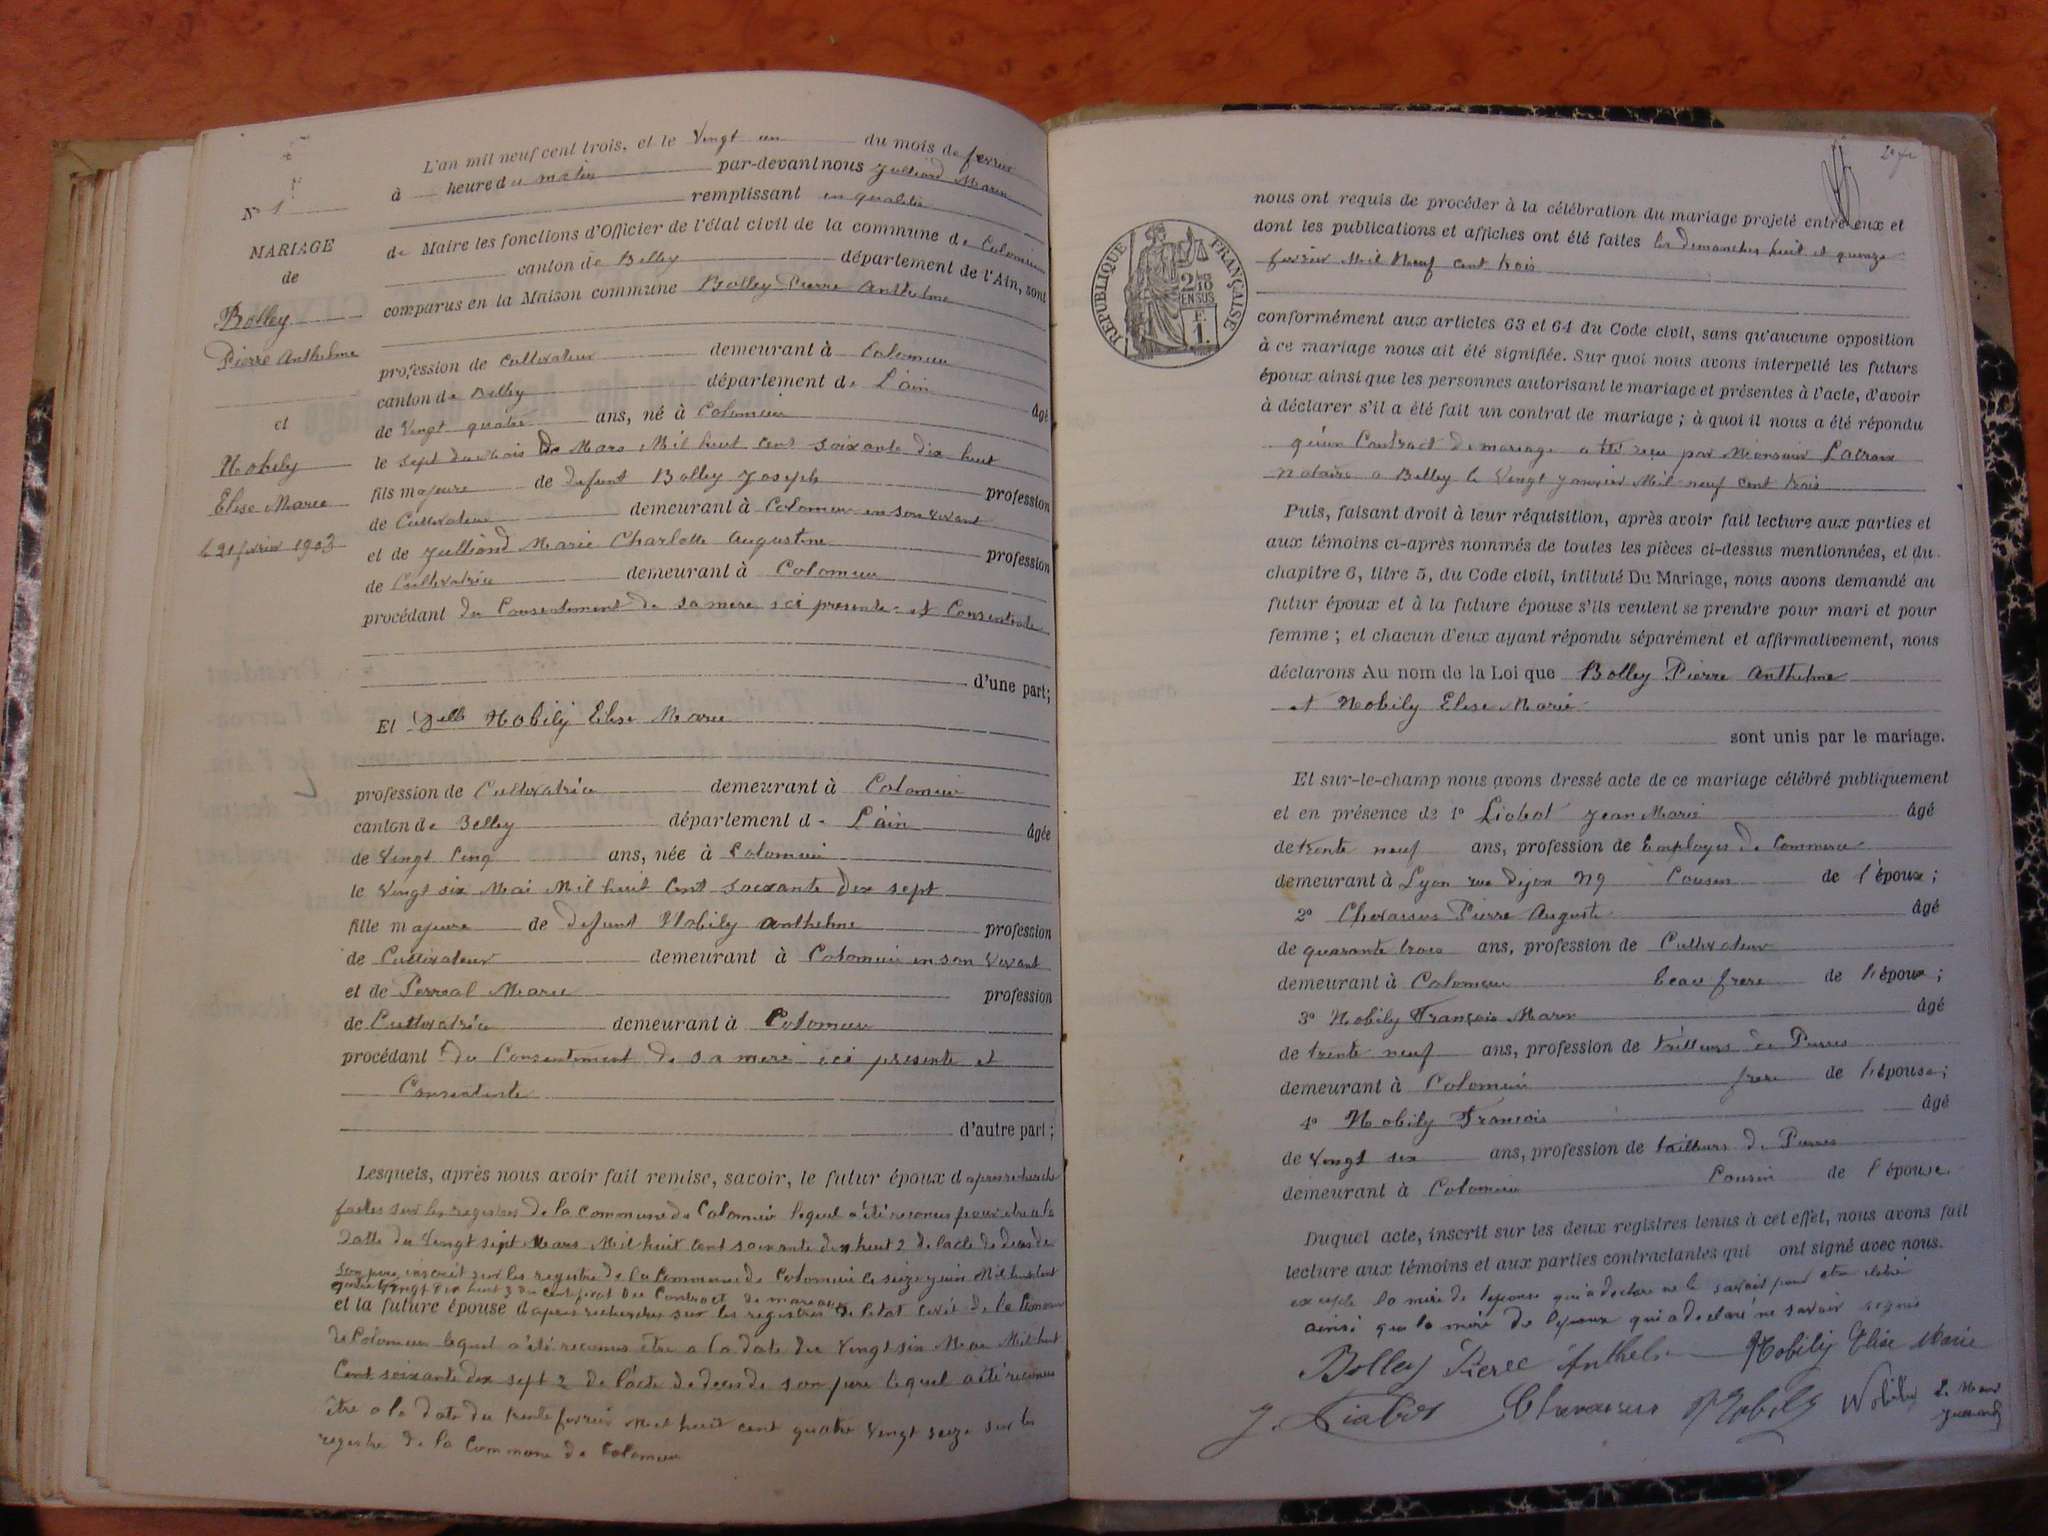 N° 1
MARIAGE
de
Bolley
Pierre Anthelme
et
Nobily
Elise Marie
le 21 février 1903
L'an mil neuf cent trois, et le Vingt un du mois de fevrier
à heure du matin par-devant nous Julliand Marin
remplissant en qualité
de Maire les fonctions d'Officier de l'état civil de la commune de Colomieu
canton de Belley département de l'Ain, sont
comparus en la Maison commune Bolley Pierre Anthelme
profession de Cultivateur demeurant à Colomieu
canton de Belley département de L'ain âgé
de Vingt quatre ans, né à Colomieu
le sept du mois de Mars Mil huit cent soixante dix huit
fils majeure de defunt Bolley Joseph profession
de Cultivateur demeurant à Colomieu en son vivant
et de Julliand Marie Charlotte Augustine profession
de Cultivatrice demeurant à Colomieu
procédant du Consentement de sa mere ici presente et Consentente
d'une part;
Et Delle Nobily Elise Marie
profession de Cultivatrice demeurant à Colomieu
canton de Belley département de L'ain âgée
de Vingt Cinq ans, née à Colomieu
le Vingt six Mai Mil huit Cent soixante dix sept
fille majeure de defunt Nobily Anthelme profession
de Cultivateur demeurant à Colomieu en son vivant
et de Perreal Marie profession
de Cultivatrice demeurant à Colomieu
procédant du Consentement de sa mere ici presente et
Consentente
d'autre part;
Lesquels, après nous avoir fait remise, savoir, le futur époux d apres recherche
faites sur les registres de la Commune de Colomieu lequel a été reconnus pour etre a la
Datte du Vingt sept Mars Mil huit Cent soixante dix huit 2 de lacte de deces de
son pere inscrit sur les registre de la Commune de Colomieu le seize juin Mil huit Cent
quatre Vingt dix huit 3 du certificat du Contract de mariage
et la future épouse d'apres recherches sur les registres de letat Civil de la Commune
de Colomieu lequel a été reconnus être a la date du Vingt six Mai Mil huit
Cent soixante dix sept 2 de l'acte de deces de son pere lequel a été reconnus
être a la date du trente fevrier Mil huit cent quatre vingt seize sur les
registre de la Commune de Colomieu
nous ont requis de procéder à la célébration du mariage projeté entre eux et
dont les publications et affiches ont été faites les dimanches huit et quinze
fevrier Mil Neuf cent trois
REPUBLIQUE FRANÇAISE
2/10 EN SUS
F. 1.
conformément aux articles 63 et 64 du Code civil, sans qu'aucune opposition
à ce mariage nous ait été signifiée. Sur quoi nous avons interpellé les futurs
époux ainsi que les personnes autorisant le mariage et présentes à l'acte, d'avoir
à déclarer s'il a été fait un contrat de mariage ; à quoi il nous a été répondu
qu'un Contract de mariage a été reçu par Monsieur Lacroix
notaire a Belley le Vingt janvier Mil neuf cent trois
Puis, faisant droit à leur réquisition, après avoir fait lecture aux parties et
aux témoins ci-après nommés de toutes les pièces ci-dessus mentionnées, et du
chapitre 6, titre 5, du Code civil, intitulé Du Mariage, nous avons demandé au
futur époux et à la future épouse s'ils veulent se prendre pour mari et pour
femme ; et chacun d'eux ayant répondu séparément et affirmativement, nous
déclarons Au nom de la Loi que Bolley Pierre Anthelme
et Nobily Elise Marie
sont unis par le mariage.
Et sur-le-champ nous avons dressé acte de ce mariage célébré publiquement
et en présence de 1° Liabot Jean Marie âgé
de trente neuf ans, profession de Employés de Commerce
demeurant à Lyon rue Dijon N 9 Cousin de l'époux ;
2° Chevassus Pierre Auguste âgé
de quarante trois ans, profession de Cultivateur
demeurant à Colomieu beau frere de l'époux ;
3° Nobily François Marin âgé
de trente neuf ans, profession de tailleurs de Pierres
demeurant à Colomieu frere de l'épouse ;
4° Nobily François âgé
de Vingt six ans, profession de tailleurs de Pierres
demeurant à Colomieu Cousin de l'épouse
Duquel acte, inscrit sur les deux registres tenus à cet effet, nous avons fait
lecture aux témoins et aux parties contractantes qui ont signé avec nous.
excepte la mère de lepouse qui a declaré ne le savoir pour etre
ainsi que la mère de lepoux qui a declaré ne savoir signer
Bolley Pierre Anthel Nobily Elise Marie
J. Liabot Chevassus Nobily Nobily Le Maire
Julliand